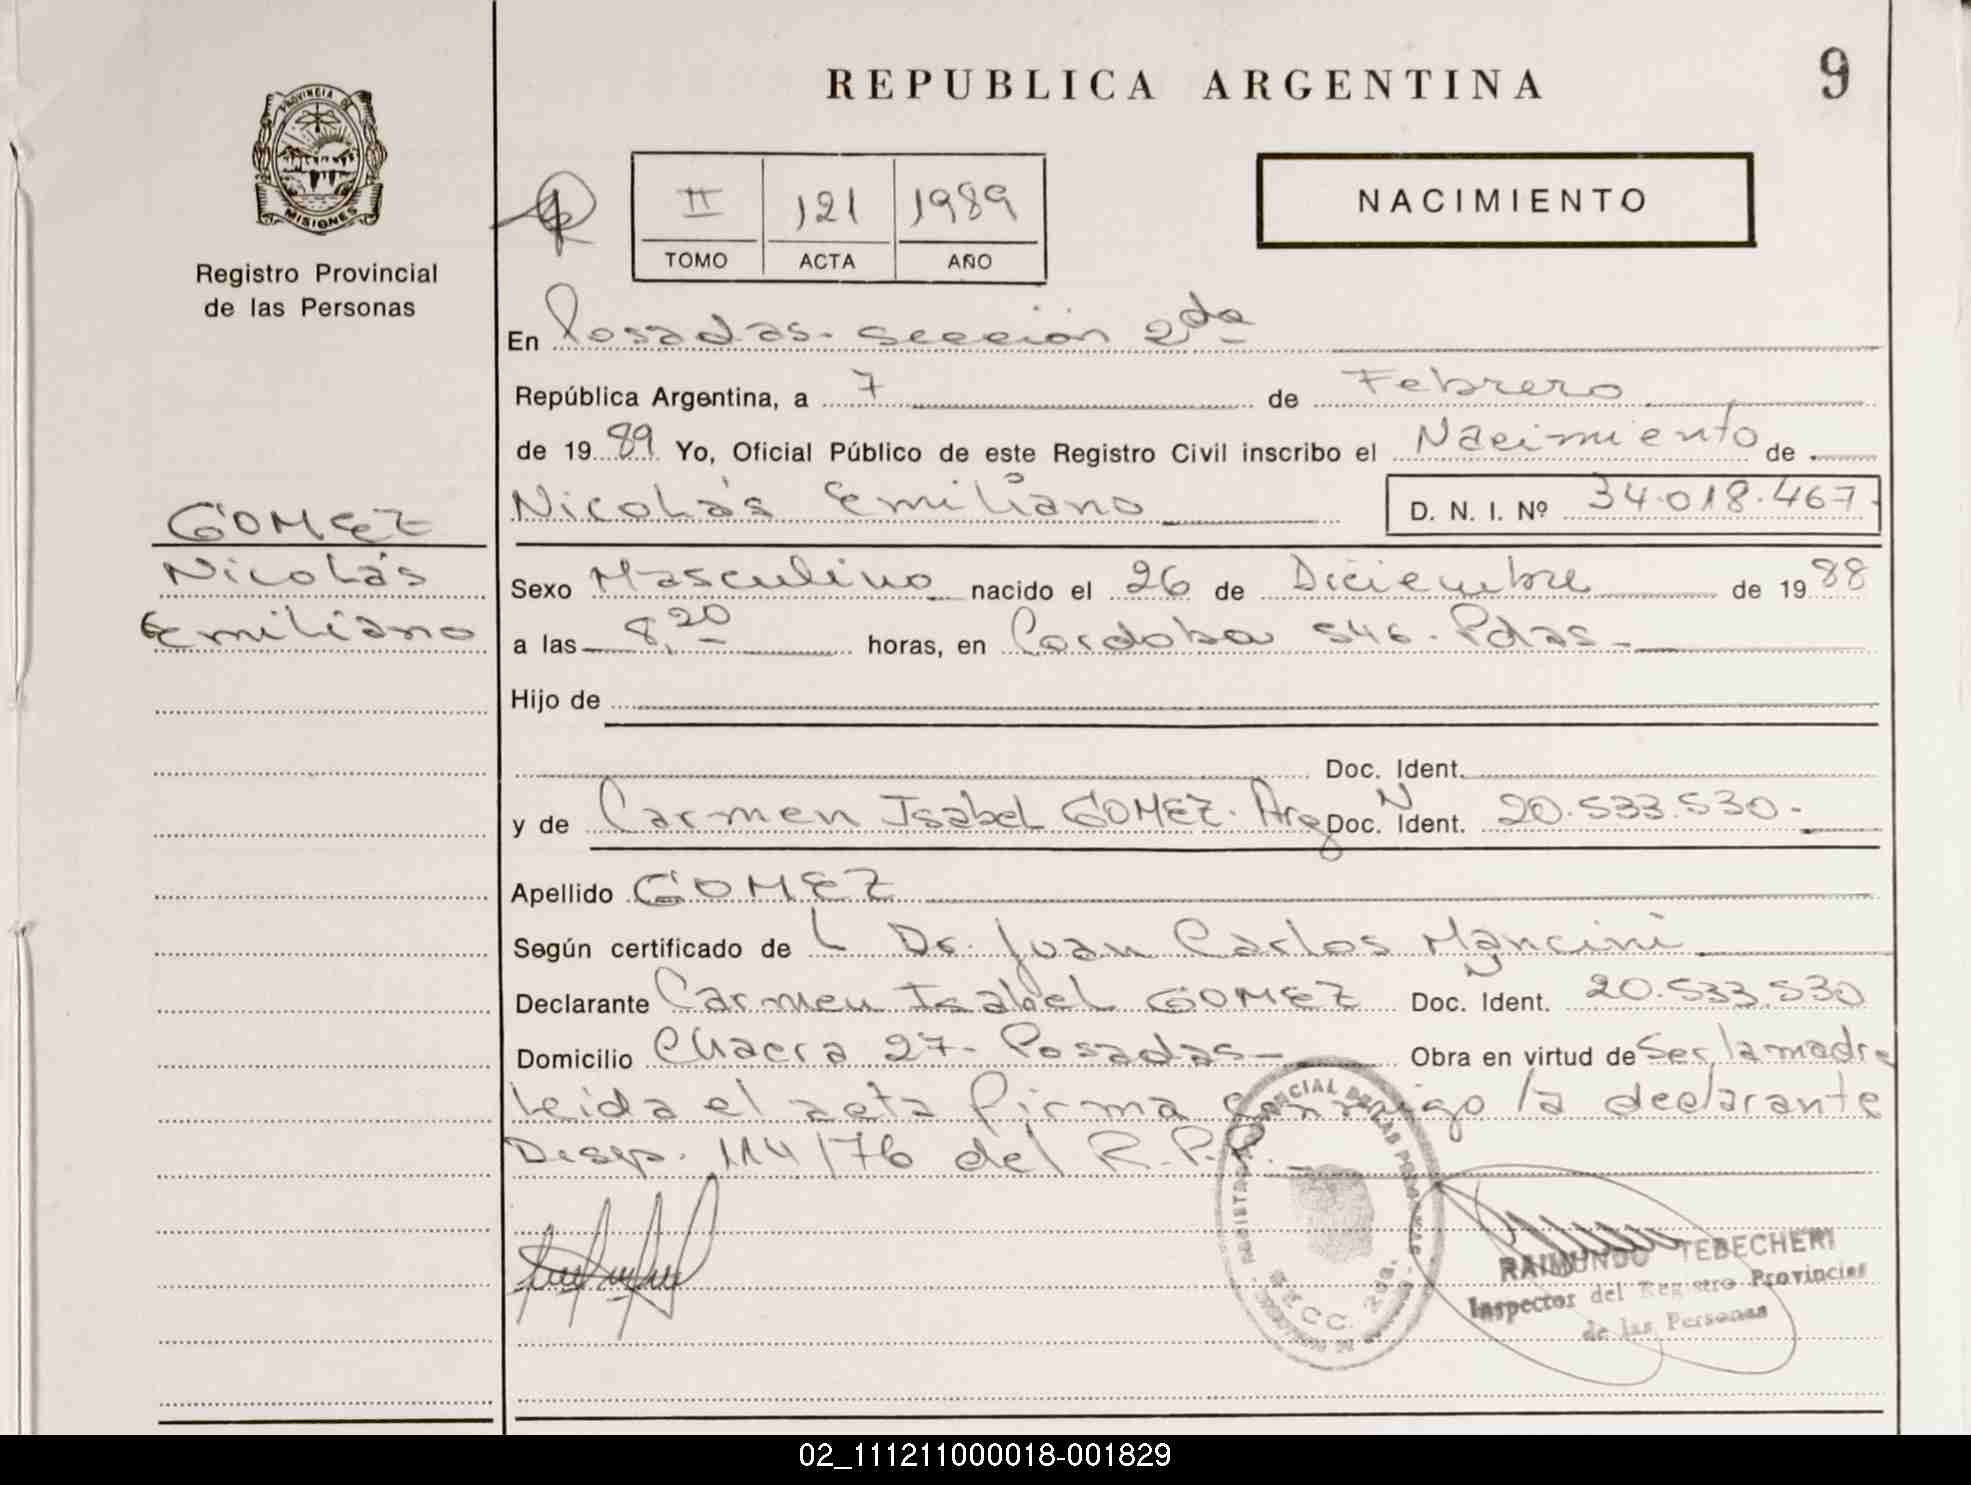 REPUBLICA ARGENTINA
9
PROVINCIA DE
MISIONES
Registro Provincial
de las Personas
II 121 1989
TOMO ACTA AÑO
NACIMIENTO
En Posadas- sección 2da
República Argentina, a 7 de Febrero
de 19 89 Yo, Oficial Público de este Registro Civil inscribo el Nacimiento de
Nicolás Emiliano D. N. I. Nº 34.018.467-
GOMEZ
Nicolás
Emiliano
Sexo Masculino nacido el 26 de Diciembre de 19 88
a las 8,20 horas, en Cordoba 546. Pdas-
Hijo de
Doc. Ident.
y de Carmen Isabel GOMEZ. Arg Doc. N Ident. 20.533.530-
Apellido GOMEZ
Según certificado de L Dr. Juan Carlos Mancini
Declarante Carmen Isabel GOMEZ Doc. N Ident. 20.533.530
Domicilio Chacra 27- Posadas- Obra en virtud de Ser la madre
Leida el acta firma conmigo la declarante
Disp. 114/76 del R.P.P.
SECC. 2da.
RAIMUNDO TEBECHERI
Inspector del Registro Provincial
de las Personas
02_111211000018-001829